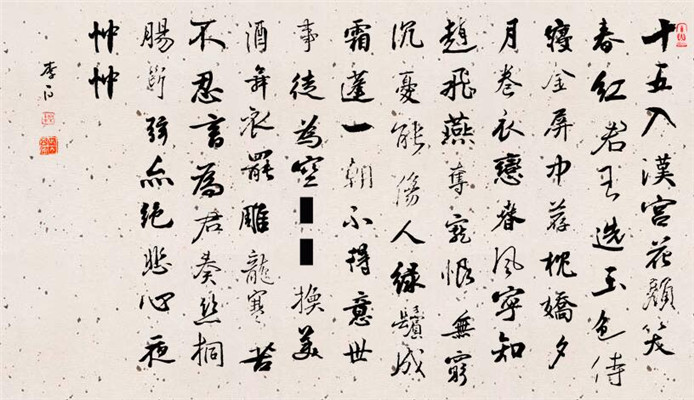 十五入漢宮花顏笑
春紅君王选玉色侍
寝金屏中荐枕嬌夕
月卷衣戀春风寧知
趙飛燕奪寵恨無窮
沉憂能傷人绿鬓成
霜蓬一朝不得意世
事徒為空換美
酒舞衣罷雕龍寒苦
不忍言為君奏丝桐
腸断弦亦绝悲心夜
忡忡
李白